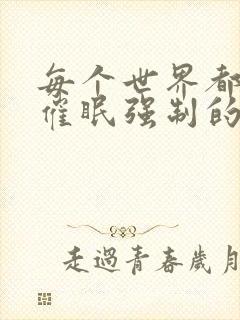 每个世界都
催眠强制的
走過青春歲月